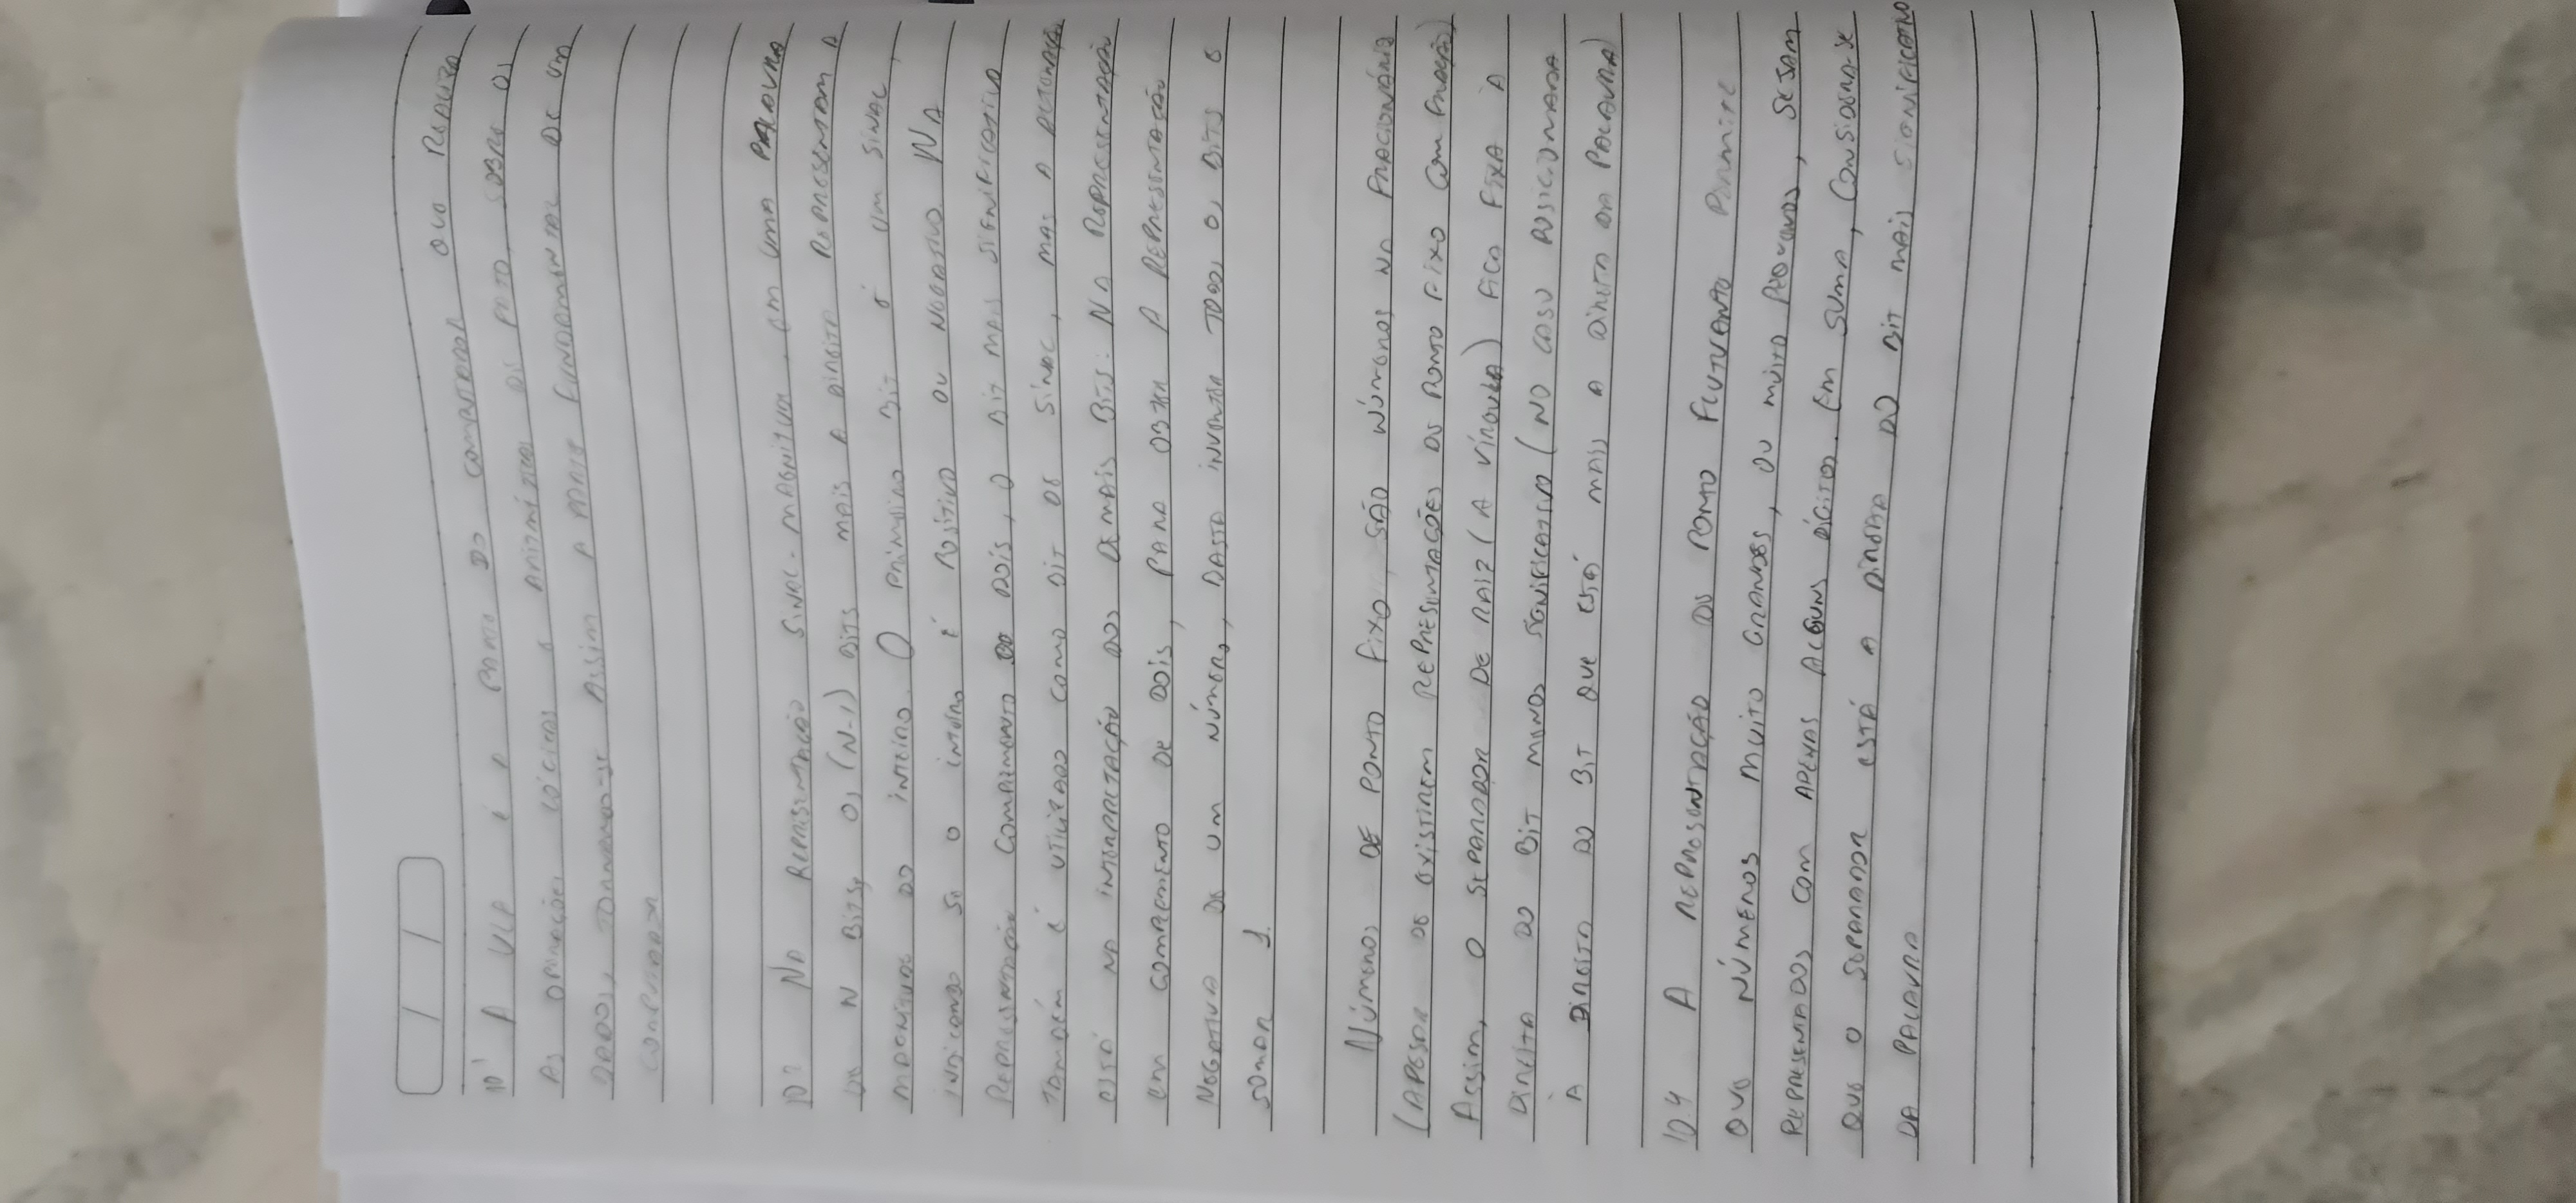 10.1 A ULA é a parte do computador que realiza
as operações lógicas e aritméticas de fato, sobre os
dados, tornando-se assim a parte fundamental de um
computador
10.2 Na representação sinal-magnitude, em uma palavra
de N bits, os (N-1) bits mais a direita representam a
magnitude do inteiro. O primeiro bit é um sinal,
indicando se o inteiro é positivo ou negativo. Na
representação complemento de dois, o bit mais significativo
também é utilizado como bit de sinal, mas a
está na interpretação dos demais bits. Na representação
em complemento de dois, para obter a representação
negativa de um número, basta inverter todos os bits e
somar 1.
Números de ponto fixo são números na fracionária
(apesar de existirem representações de ponto fixo com fração)
Assim, o separador de raiz (a vírgula) fica fixa à
direita do bit menos significativo (no caso posicionada
à direita do bit que está mais a direita da palavra)
10.4 A representação de ponto flutuante permite
que números muito grandes, ou muito pequenos, sejam
representados com apenas alguns dígitos. Em suma, considera-se
que o separador está a direita do bit mais significativo
da palavra